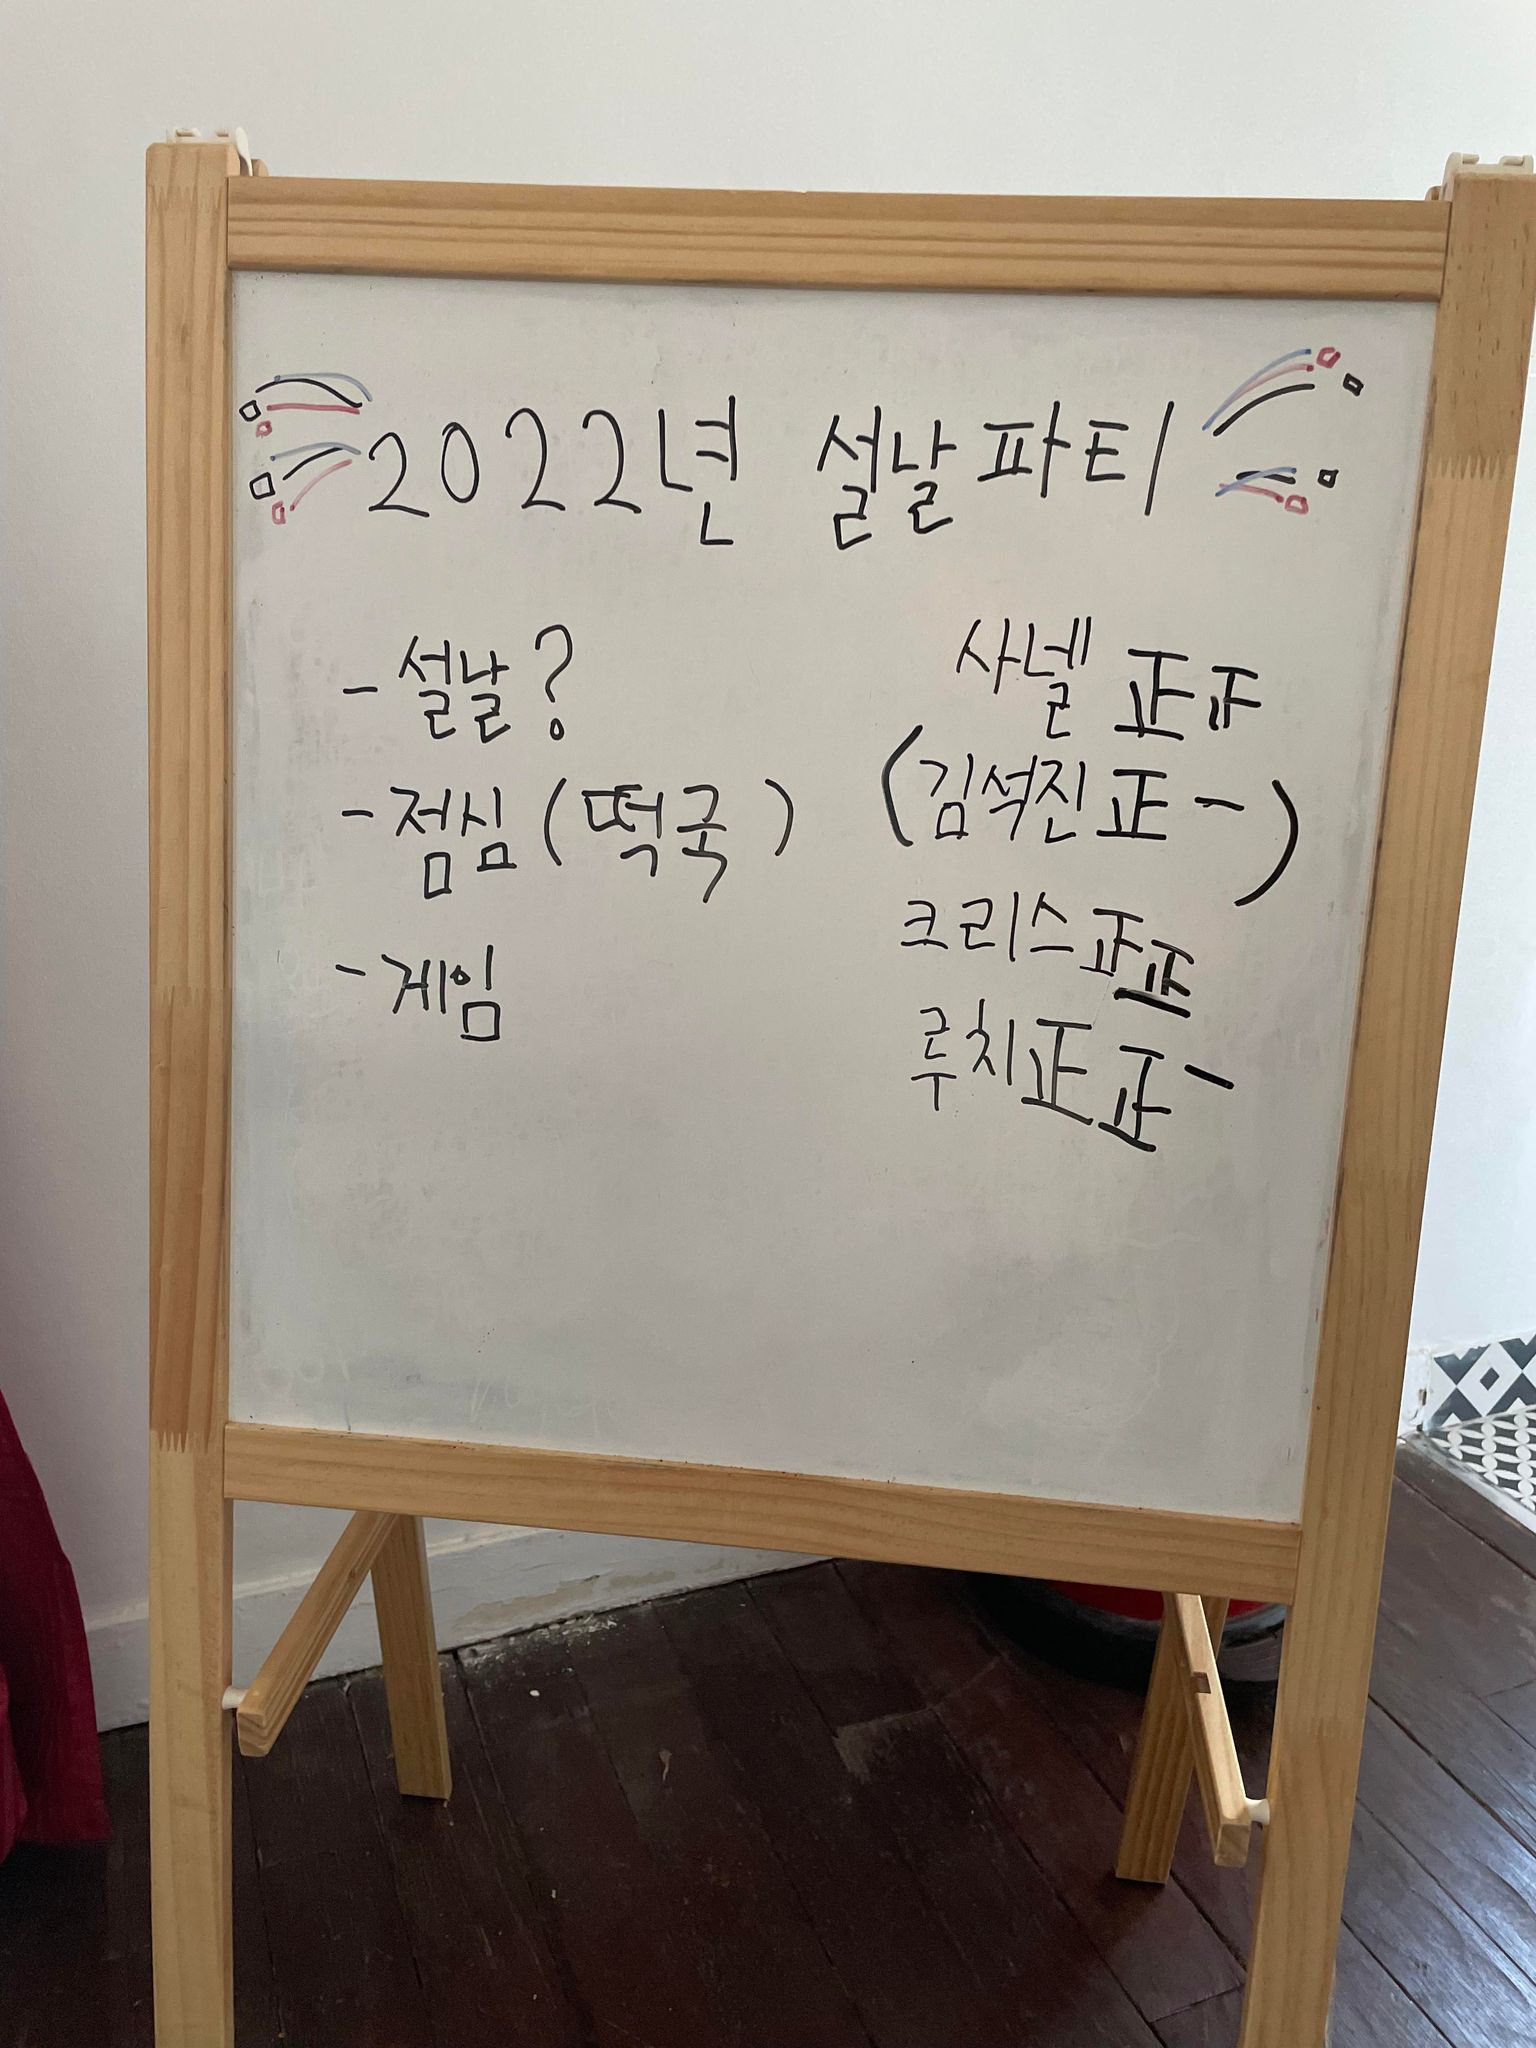 2022년 설날 파티
- 설날?
- 점심 (떡국)
- 게임
사넬 正正
(김석진 正一)
크리스 正正
루치 正正一